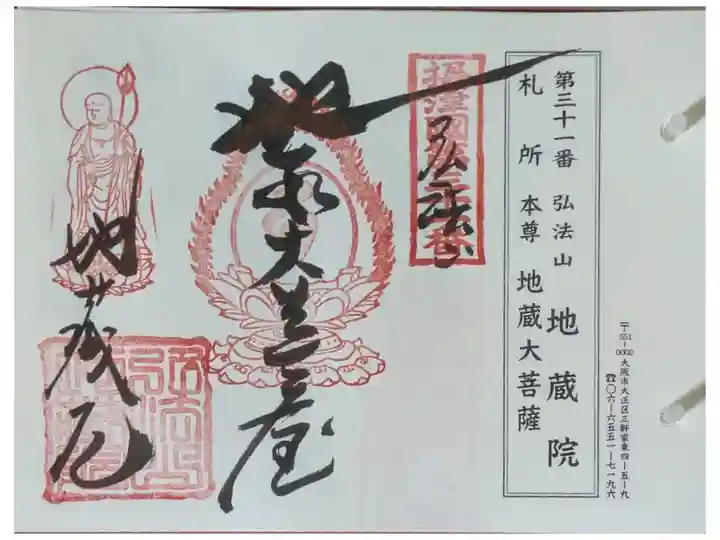 〒551-0002 大阪市大正区三軒家東四-五-九
☎〇六-六五五一-七一九六
第三十一番 弘法山 地蔵院
札所 本尊 地蔵大菩薩
弘法山
地蔵大菩薩
地蔵院